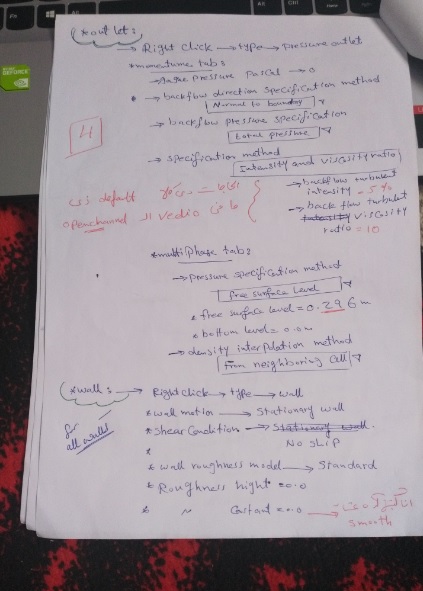 *outlet:
→ Right Click → type → pressure outlet
*momentume tabs
→ gage pressure pascal → 0
* → backflow direction specification method
Normal to boundary
→ backflow pressure specification
total pressure
4
→ specification method
Intensity and viscosity ratio
→ backflow turbulent
intensity = 5 %
→ back flow turbulent
viscosity
ratio = 10
default
الـ vedio
*multiphase tabs
→ pressure specification method
free surface level
* free surface level = 0.296 m
* bottom level = 0.0m
→ density interpolation method
From neighboring Cell
*wall: → Right click → type → wall
*wall motion → Stationary wall
for
all walls
*shear Condition → Stationary wall.
No slip
*
* wall roughness model → Standard
* Roughness hight = 0.0
* " Constant = 0.0 →
smooth
GEFORCE